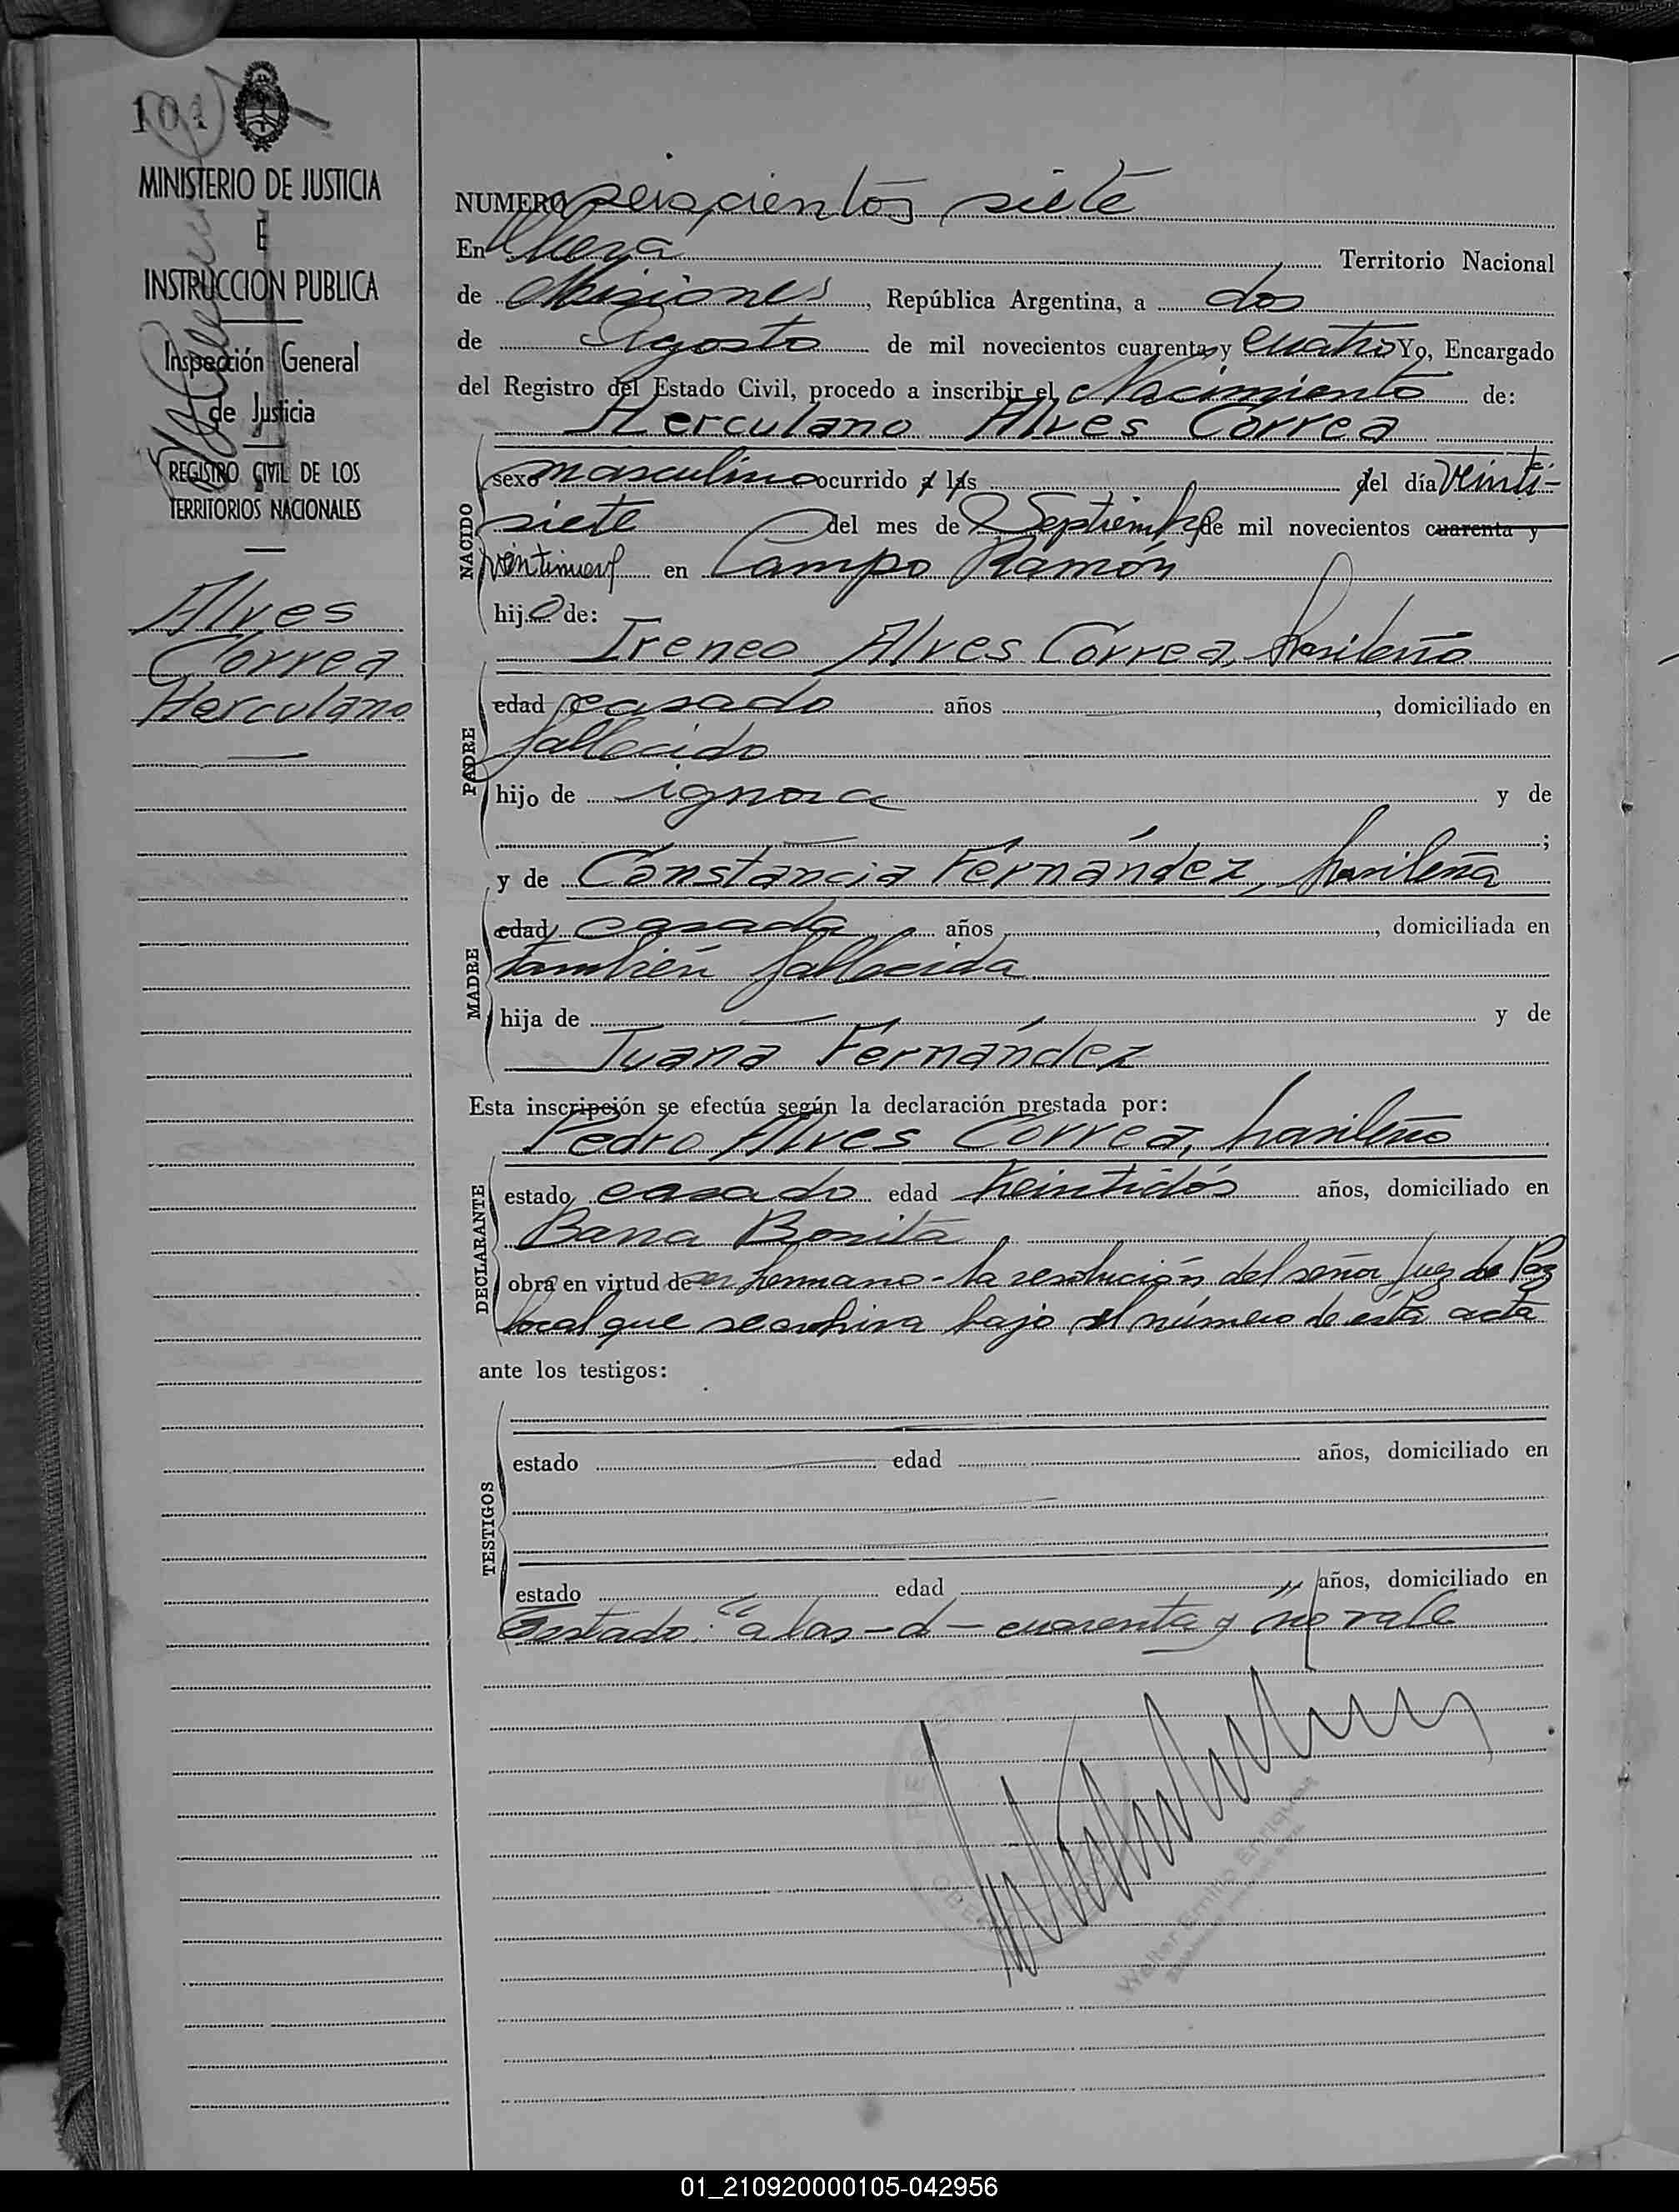 101
MINISTERIO DE JUSTICIA
E
INSTRUCCION PUBLICA
Inspección General
de Justicia
REGISTRO CIVIL DE LOS
TERRITORIOS NACIONALES
Alves
Correa
Herculano
NUMERO seiscientos siete
En Oberá Territorio Nacional
de Misiones, República Argentina, a dos
de Agosto de mil novecientos cuarenta y cuatro Yo, Encargado
del Registro del Estado Civil, procedo a inscribir el Nacimiento de:
Herculano Alves Correa
NACIDO
sexo masculino ocurrido a las del día veinti-
siete del mes de Septiembre de mil novecientos cuarenta y
veintinueve en Campo Ramón
hijo de:
PADRE
Ireneo Alves Correa, brasileño
edad casado años, domiciliado en
fallecido
hijo de ignora y de
;
MADRE
y de Constancia Fernández, brasileña
edad casada años, domiciliada en
también fallecida
hija de y de
Juana Fernández
Esta inscripción se efectúa según la declaración prestada por:
DECLARANTE
Pedro Alves Correa, brasileño
estado casado edad treintidós años, domiciliado en
Barra Bonita
obra en virtud de ser hermano - la resolución del señor Juez de Paz
local que se archiva bajo el número de esta acta
ante los testigos:
TESTIGOS
estado edad años, domiciliado en
estado edad años, domiciliado en
Testado: "a las - d - cuarenta y" no vale
Walter Emilio Enriquez
01_210920000105-042956